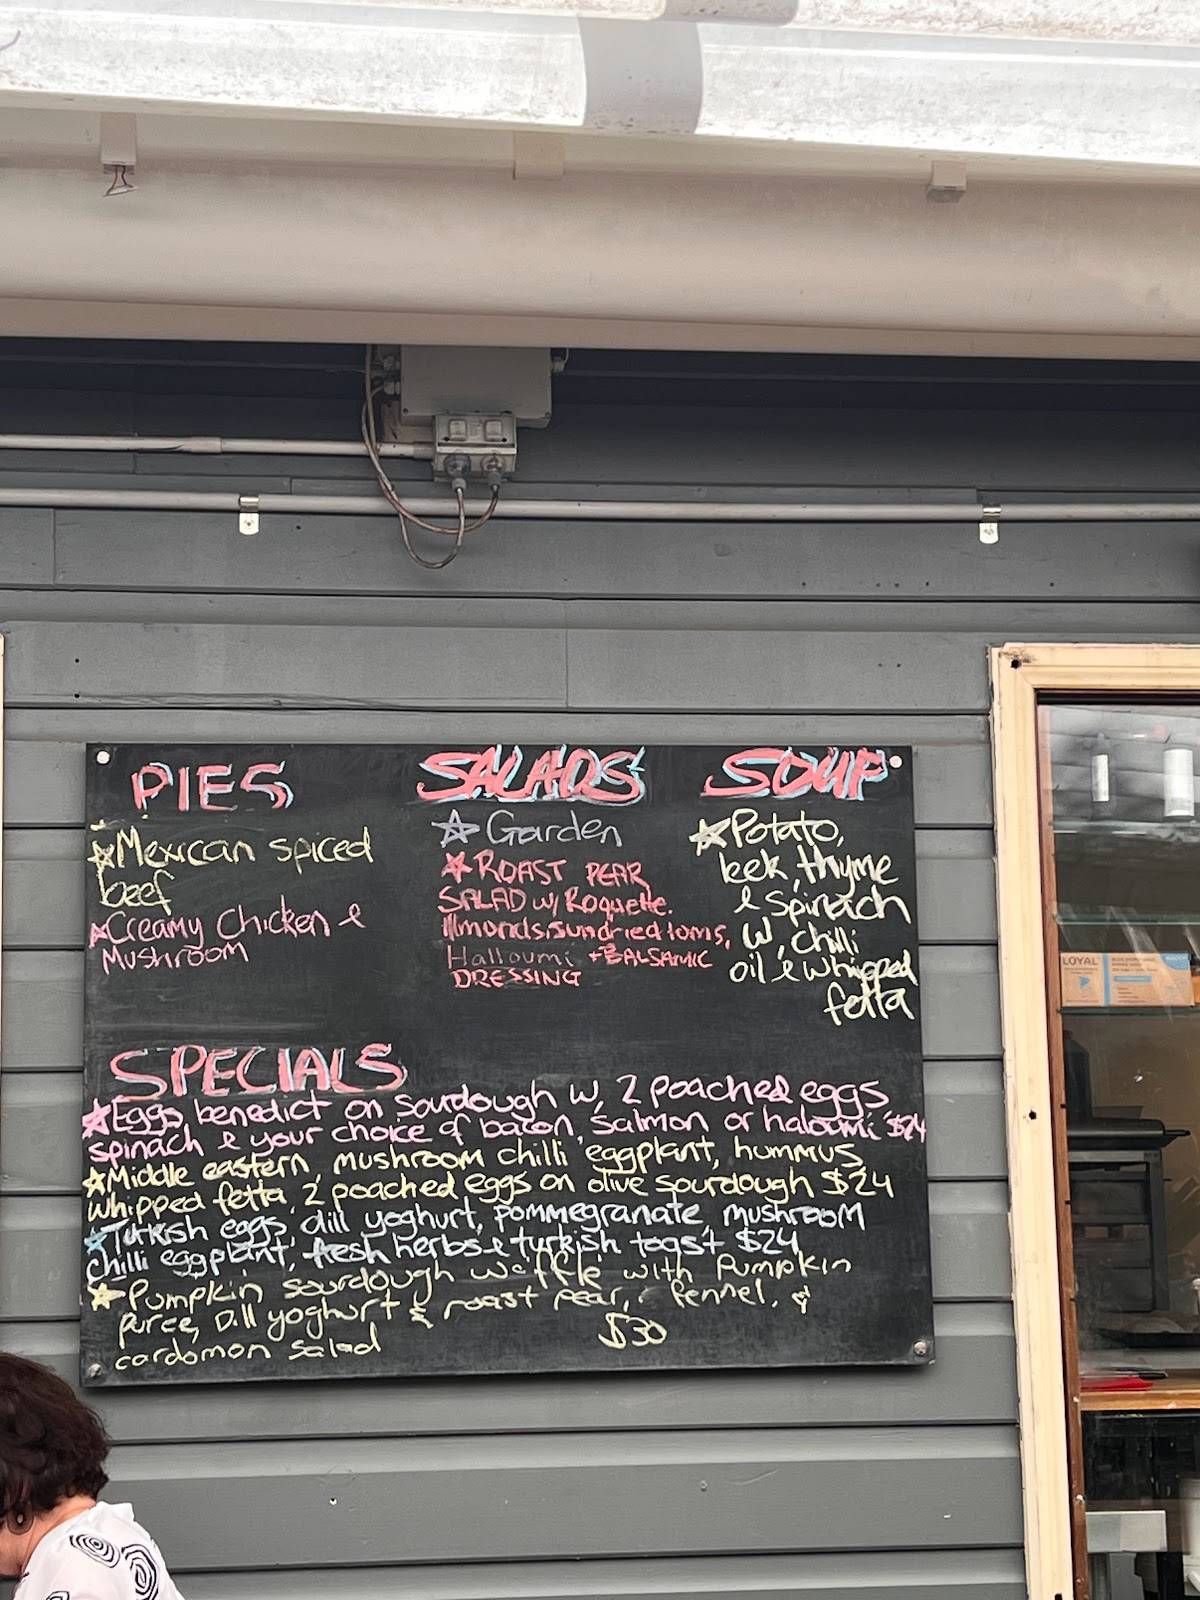 PIES
Mexican spiced
beef
Creamy Chicken &
Mushroom
SALADS
Garden
ROAST PEAR
SALAD w/ Roquette.
Almonds, sundried toms,
Halloumi + BALSAMIC
DRESSING
SOUP
Potato,
leek, thyme
& Spinach
w, chilli
oil & whipped
fetta
SPECIALS
Eggs benedict on sourdough w, 2 poached eggs
spinach & your choice of bacon, salmon or haloumi $24
Middle eastern, mushroom chilli eggplant, hummus
whipped fetta, 2 poached eggs on olive sourdough $24
Turkish eggs, dill yoghurt, pommegranate, mushroom
chilli eggplant, fresh herbs & turkish toast $24
Pumpkin sourdough waffle with Pumpkin
puree, Dill yoghurt & roast pear, fennel, &
cardomon salad $30
LOYAL